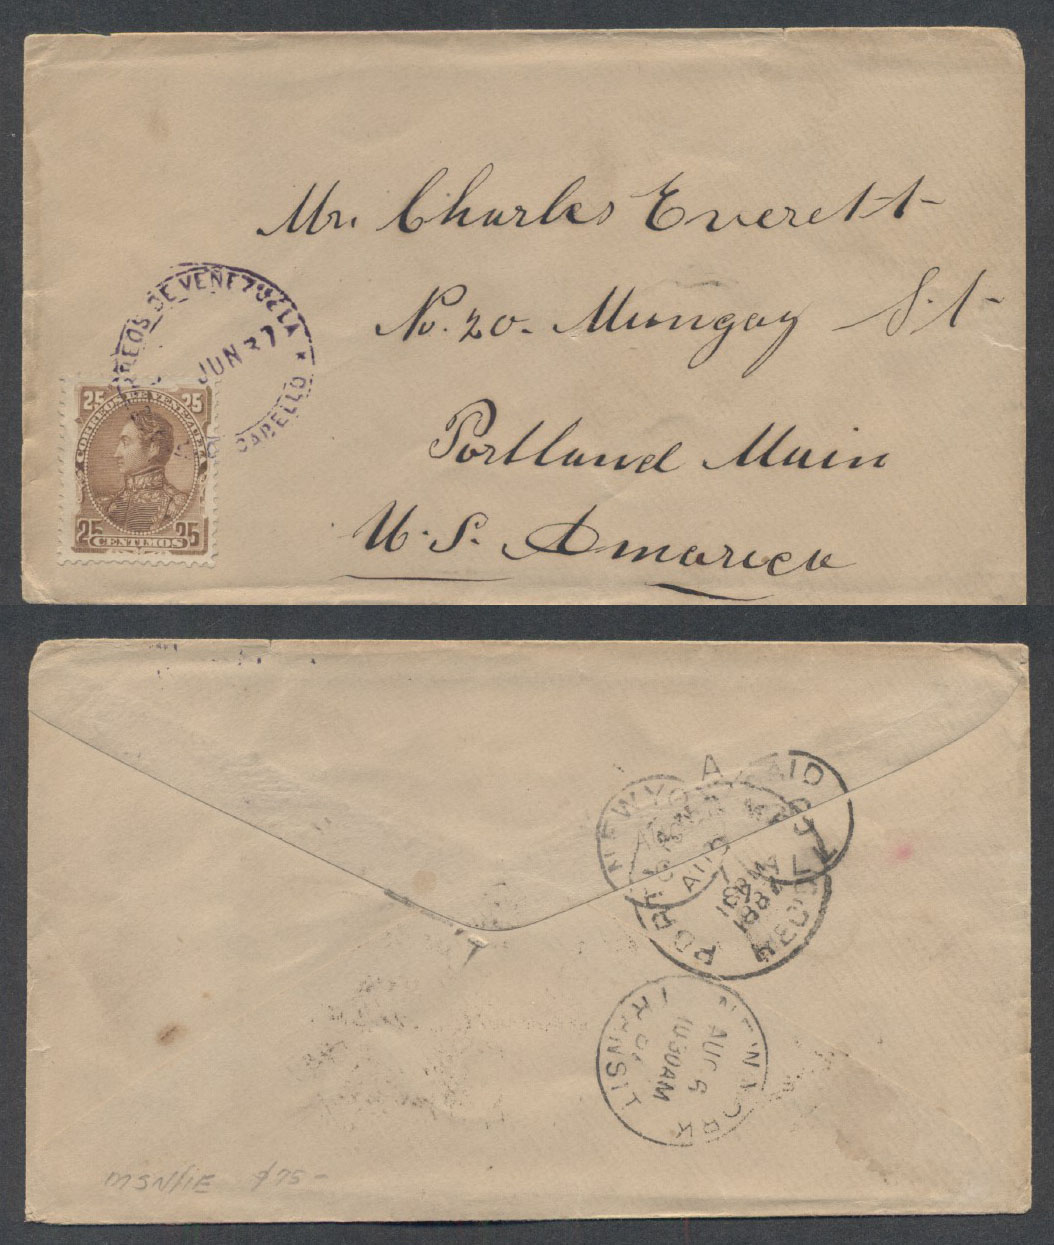 Mr. Charles Everett
No. 20. Mungoy St
Portland Main
U. S. Amarica
CORREOS DE VENEZUELA *
JUN 27
CABELLO
25 25
CORREOS DE VENEZUELA
25 25
CENTIMOS
A PAID
NEW YORK
AUG
PORT
REC'D.
7 AM
1881
NEW YORK
AUG 6
1030AM
81
TRANSIT
$75-